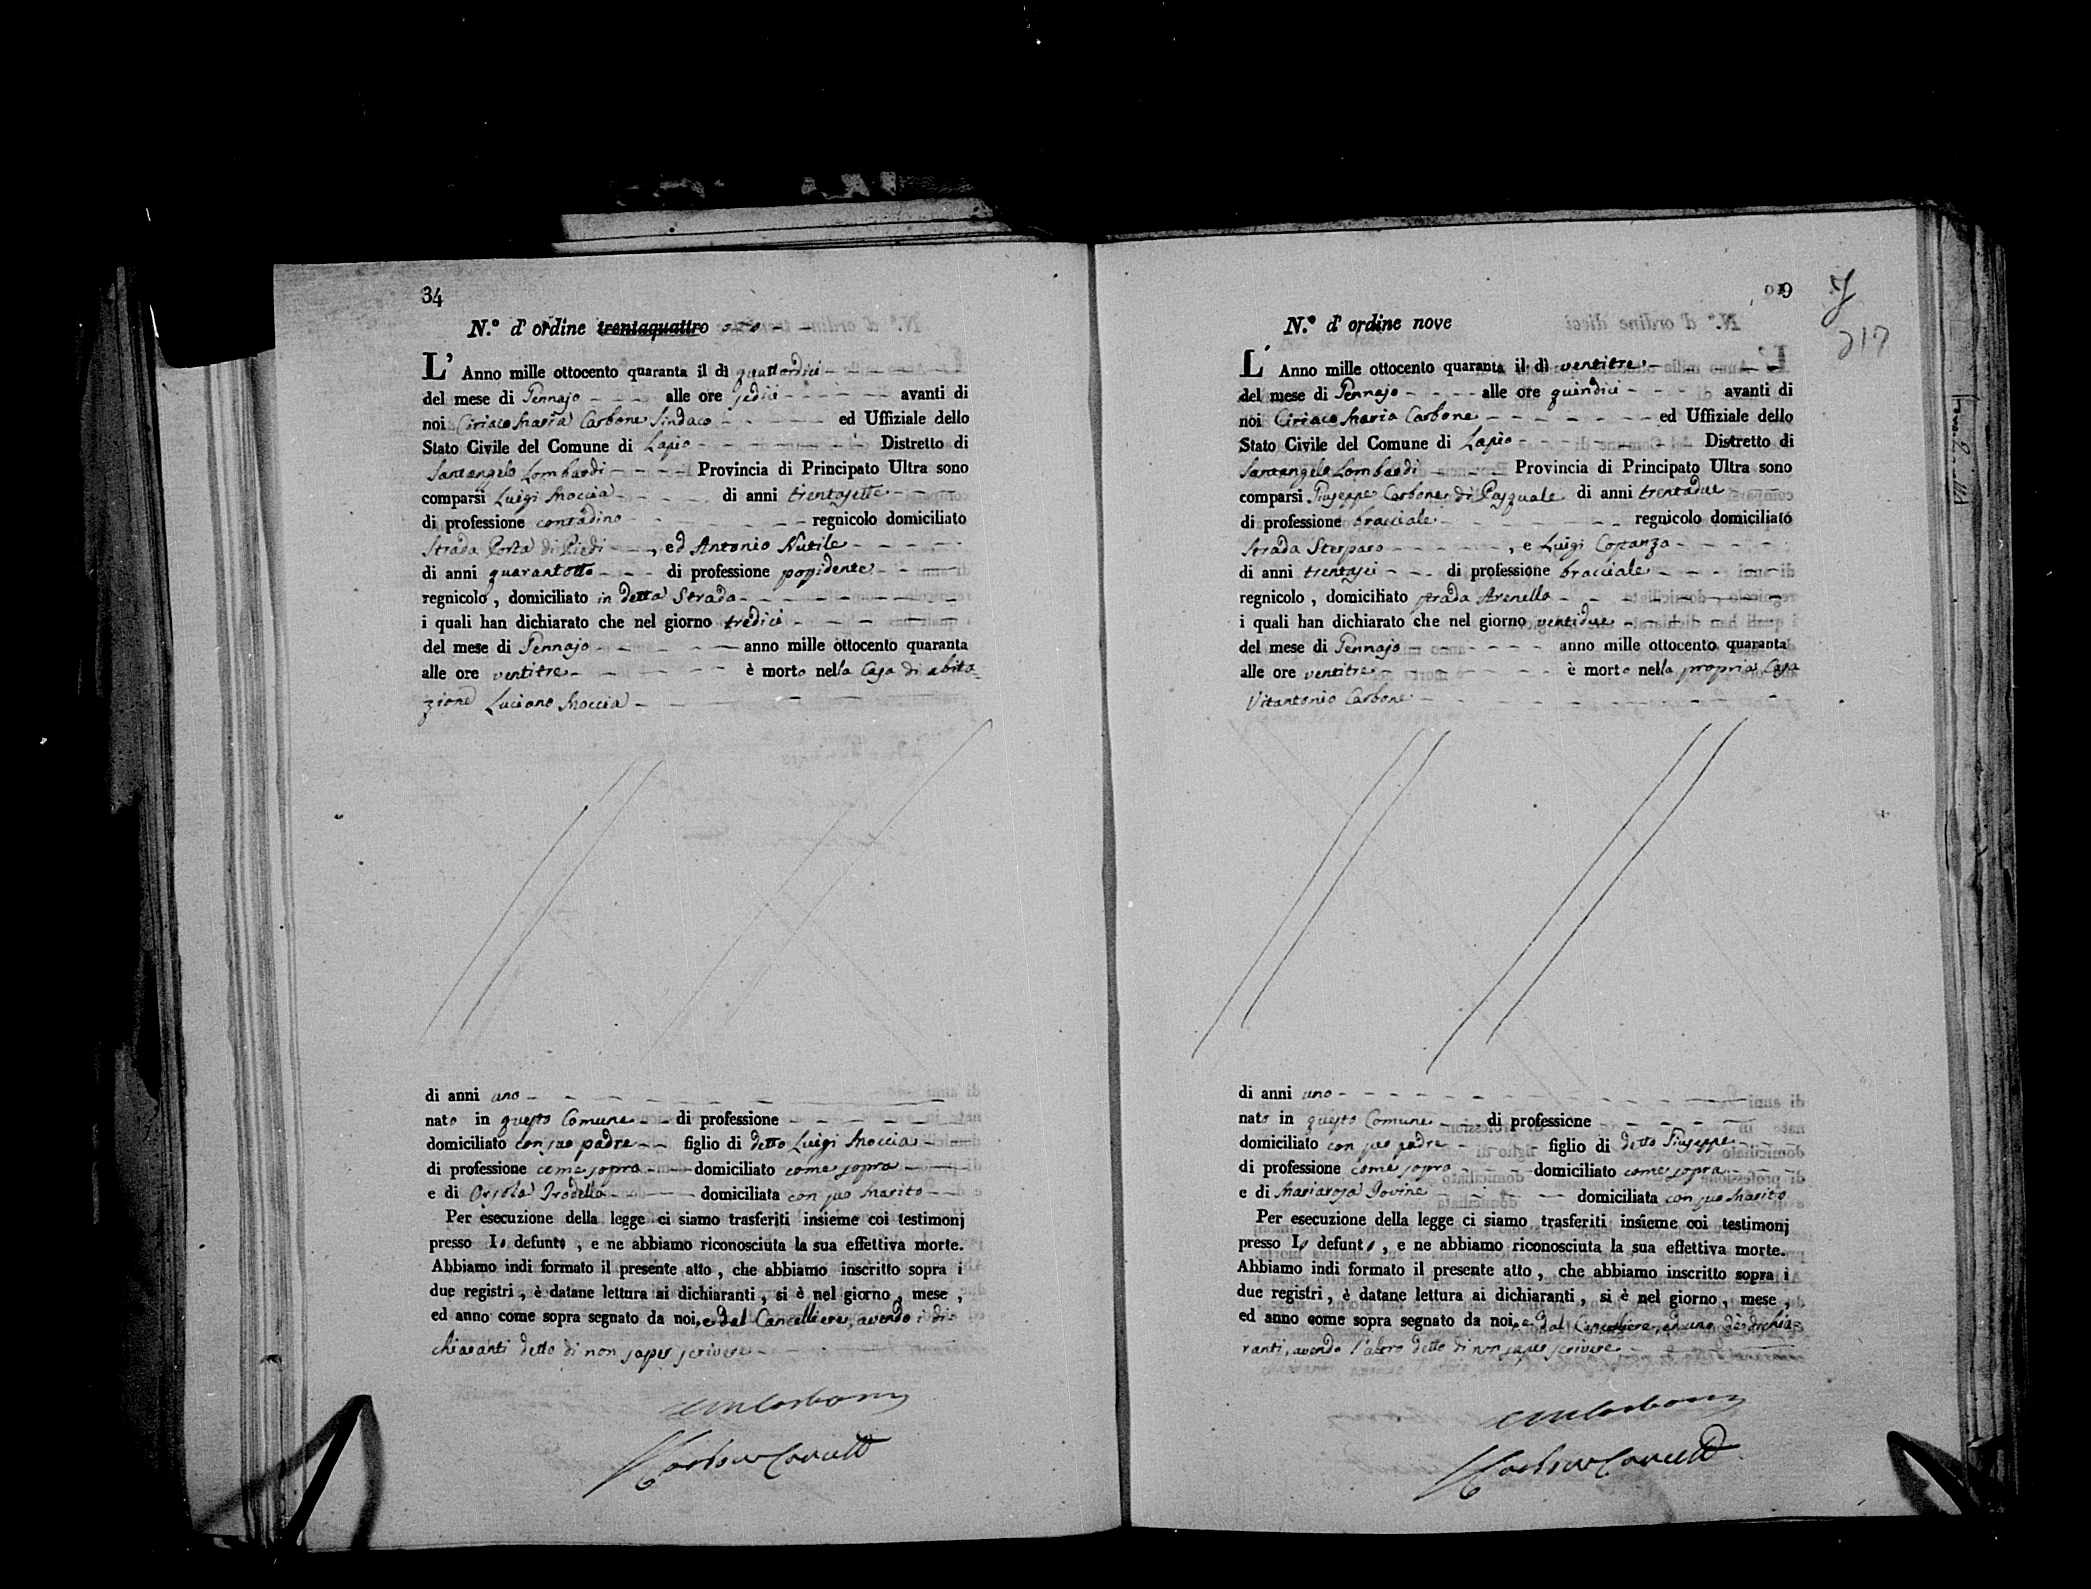 34
N.º d' ordine trentaquattro otto
L' Anno mille ottocento quaranta il dì quattordici
del mese di Gennajo alle ore sedici avanti di
noi Ciriaco Maria Carbone Sindaco ed Uffiziale dello
Stato Civile del Comune di Lapio Distretto di
Santangelo Lombardi Provincia di Principato Ultra sono
comparsi Luigi Moccia di anni trentasette
di professione contadino regnicolo domiciliato
Strada Porta di Piedi, ed Antonio Nutile
di anni quarantotto di professione possidente
regnicolo, domiciliato in detta Strada
i quali han dichiarato che nel giorno tredici
del mese di Gennajo anno mille ottocento quaranta
alle ore ventitre è morto nella Casa di abita
zione Luciano Moccia
di anni uno
nato in questo Comune di professione
domiciliato con suo padre figlio di detto Luigi Moccia
di professione come sopra domiciliato come sopra
e di Orsola domiciliata con suo Marito
Per esecuzione della legge ci siamo trasferiti insieme coi testimonj
presso Lo defunto, e ne abbiamo riconosciuta la sua effettiva morte.
Abbiamo indi formato il presente atto, che abbiamo inscritto sopra i
due registri, è datane lettura ai dichiaranti, si è nel giorno, mese,
ed anno come sopra segnato da noi, e dal Cancelliere, avendo i di
chiaranti detto di non saper scrivere
CMCarbone
9
7
217
N.º d' ordine nove
L' Anno mille ottocento quaranta il dì ventitre
del mese di Gennajo alle ore quindici avanti di
noi Ciriaco Maria Carbone ed Uffiziale dello
Stato Civile del Comune di Lapio Distretto di
Santangelo Lombardi Provincia di Principato Ultra sono
comparsi Giuseppe Carbone di Pasquale di anni trentadue
di professione bracciale regnicolo domiciliato
Strada Sterparo, e Luigi Costanza
di anni trentasei di professione bracciale
regnicolo, domiciliato strada Arenella
i quali han dichiarato che nel giorno ventidue
del mese di Gennajo anno mille ottocento quaranta
alle ore ventitre è morto nella propria Casa
Vitantonio Carbone
di anni uno
nato in questo Comune di professione
domiciliato con suo padre figlio di detto Giuseppe
di professione come sopra domiciliato come sopra
e di Mariarosa Iovine domiciliata con suo Marito
Per esecuzione della legge ci siamo trasferiti insieme coi testimonj
presso Lo defunto, e ne abbiamo riconosciuta la sua effettiva morte.
Abbiamo indi formato il presente atto, che abbiamo inscritto sopra i
due registri, è datane lettura ai dichiaranti, si è nel giorno, mese,
ed anno come sopra segnato da noi, e dal Cancelliere, ed uno de' dichia=
ranti, avendo l'altro detto di non saper scrivere
CMCarbone